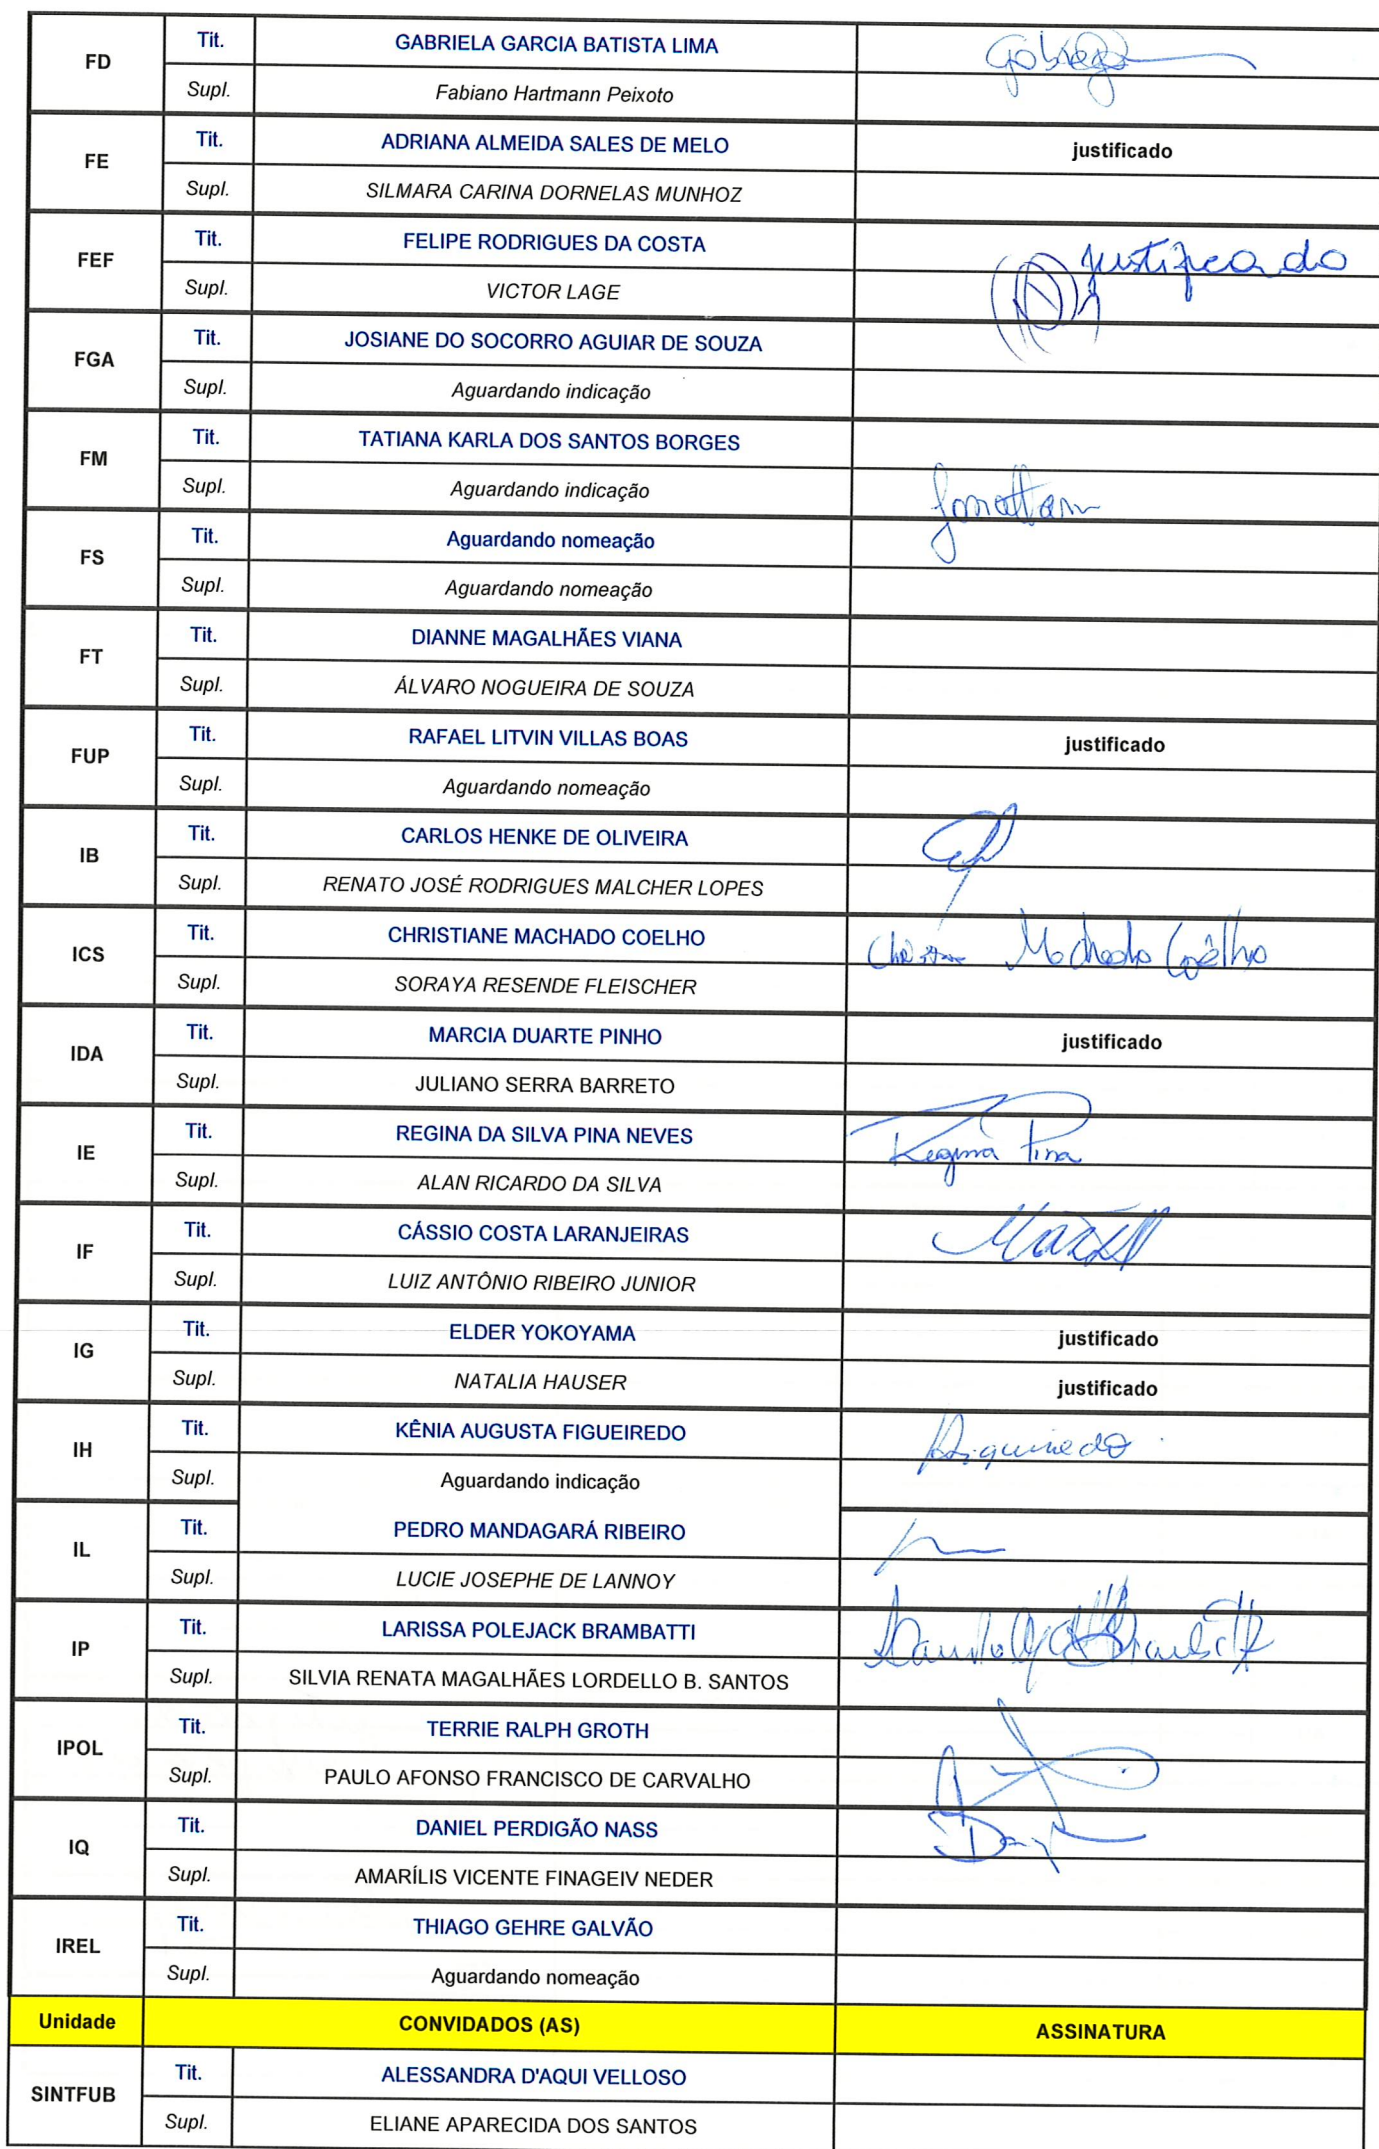 FD Tit. GABRIELA GARCIA BATISTA LIMA
Supl. Fabiano Hartmann Peixoto
FE Tit. ADRIANA ALMEIDA SALES DE MELO justificado
Supl. SILMARA CARINA DORNELAS MUNHOZ
FEF Tit. FELIPE RODRIGUES DA COSTA justificado
Supl. VICTOR LAGE
FGA Tit. JOSIANE DO SOCORRO AGUIAR DE SOUZA
Supl. Aguardando indicação
FM Tit. TATIANA KARLA DOS SANTOS BORGES
Supl. Aguardando indicação
FS Tit. Aguardando nomeação
Supl. Aguardando nomeação
FT Tit. DIANNE MAGALHÃES VIANA
Supl. ÁLVARO NOGUEIRA DE SOUZA
FUP Tit. RAFAEL LITVIN VILLAS BOAS justificado
Supl. Aguardando nomeação
IB Tit. CARLOS HENKE DE OLIVEIRA
Supl. RENATO JOSÉ RODRIGUES MALCHER LOPES
ICS Tit. CHRISTIANE MACHADO COELHO Machado Coêlho
Supl. SORAYA RESENDE FLEISCHER
IDA Tit. MARCIA DUARTE PINHO justificado
Supl. JULIANO SERRA BARRETO
IE Tit. REGINA DA SILVA PINA NEVES Regina Pina
Supl. ALAN RICARDO DA SILVA
IF Tit. CÁSSIO COSTA LARANJEIRAS
Supl. LUIZ ANTÔNIO RIBEIRO JUNIOR
IG Tit. ELDER YOKOYAMA justificado
Supl. NATALIA HAUSER justificado
IH Tit. KÊNIA AUGUSTA FIGUEIREDO
Supl. Aguardando indicação
IL Tit. PEDRO MANDAGARÁ RIBEIRO
Supl. LUCIE JOSEPHE DE LANNOY
IP Tit. LARISSA POLEJACK BRAMBATTI
Supl. SILVIA RENATA MAGALHÃES LORDELLO B. SANTOS
IPOL Tit. TERRIE RALPH GROTH
Supl. PAULO AFONSO FRANCISCO DE CARVALHO
IQ Tit. DANIEL PERDIGÃO NASS
Supl. AMARÍLIS VICENTE FINAGEIV NEDER
IREL Tit. THIAGO GEHRE GALVÃO
Supl. Aguardando nomeação
Unidade CONVIDADOS (AS) ASSINATURA
SINTFUB Tit. ALESSANDRA D'AQUI VELLOSO
Supl. ELIANE APARECIDA DOS SANTOS